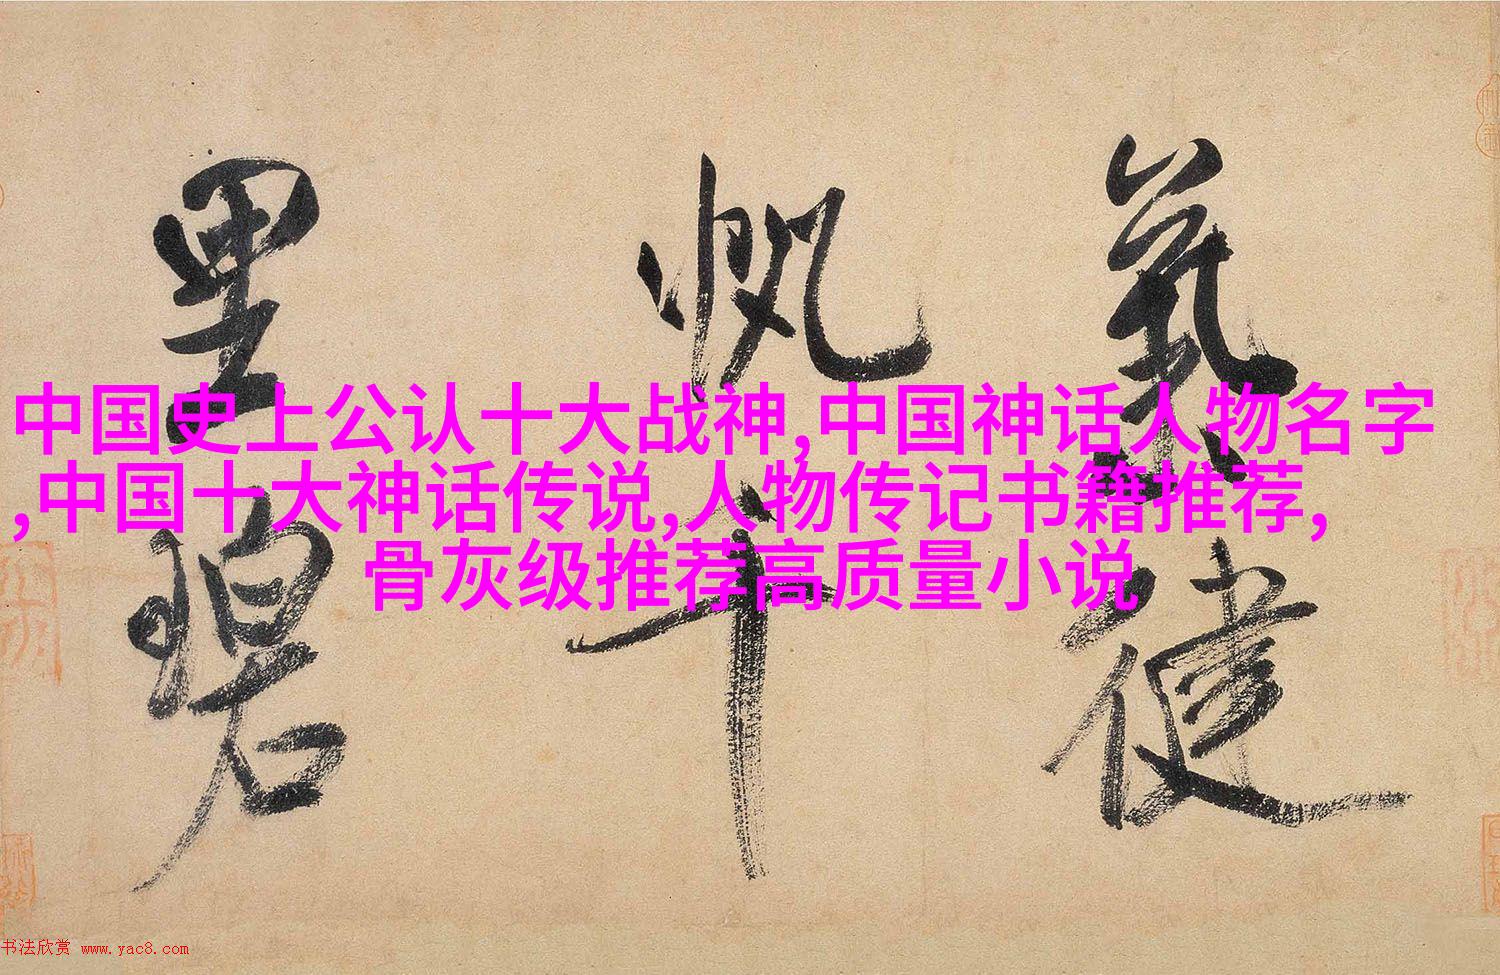 氣健
帆千
里碧
中国史上公认十大战神,中国神话人物名字
,中国十大神话传说,人物传记书籍推荐,
骨灰级推荐高质量小说
书法欣赏 www.yac8.com